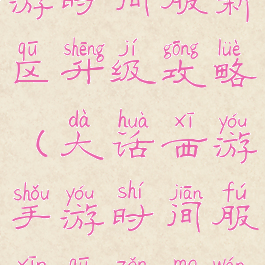 游时间服新
qū shēng jí gōng lüè
区升级攻略
dà huà xī yóu
（大话西游
shǒu yóu shí jiān fú
手游时间服
xīn qū zěn me wán